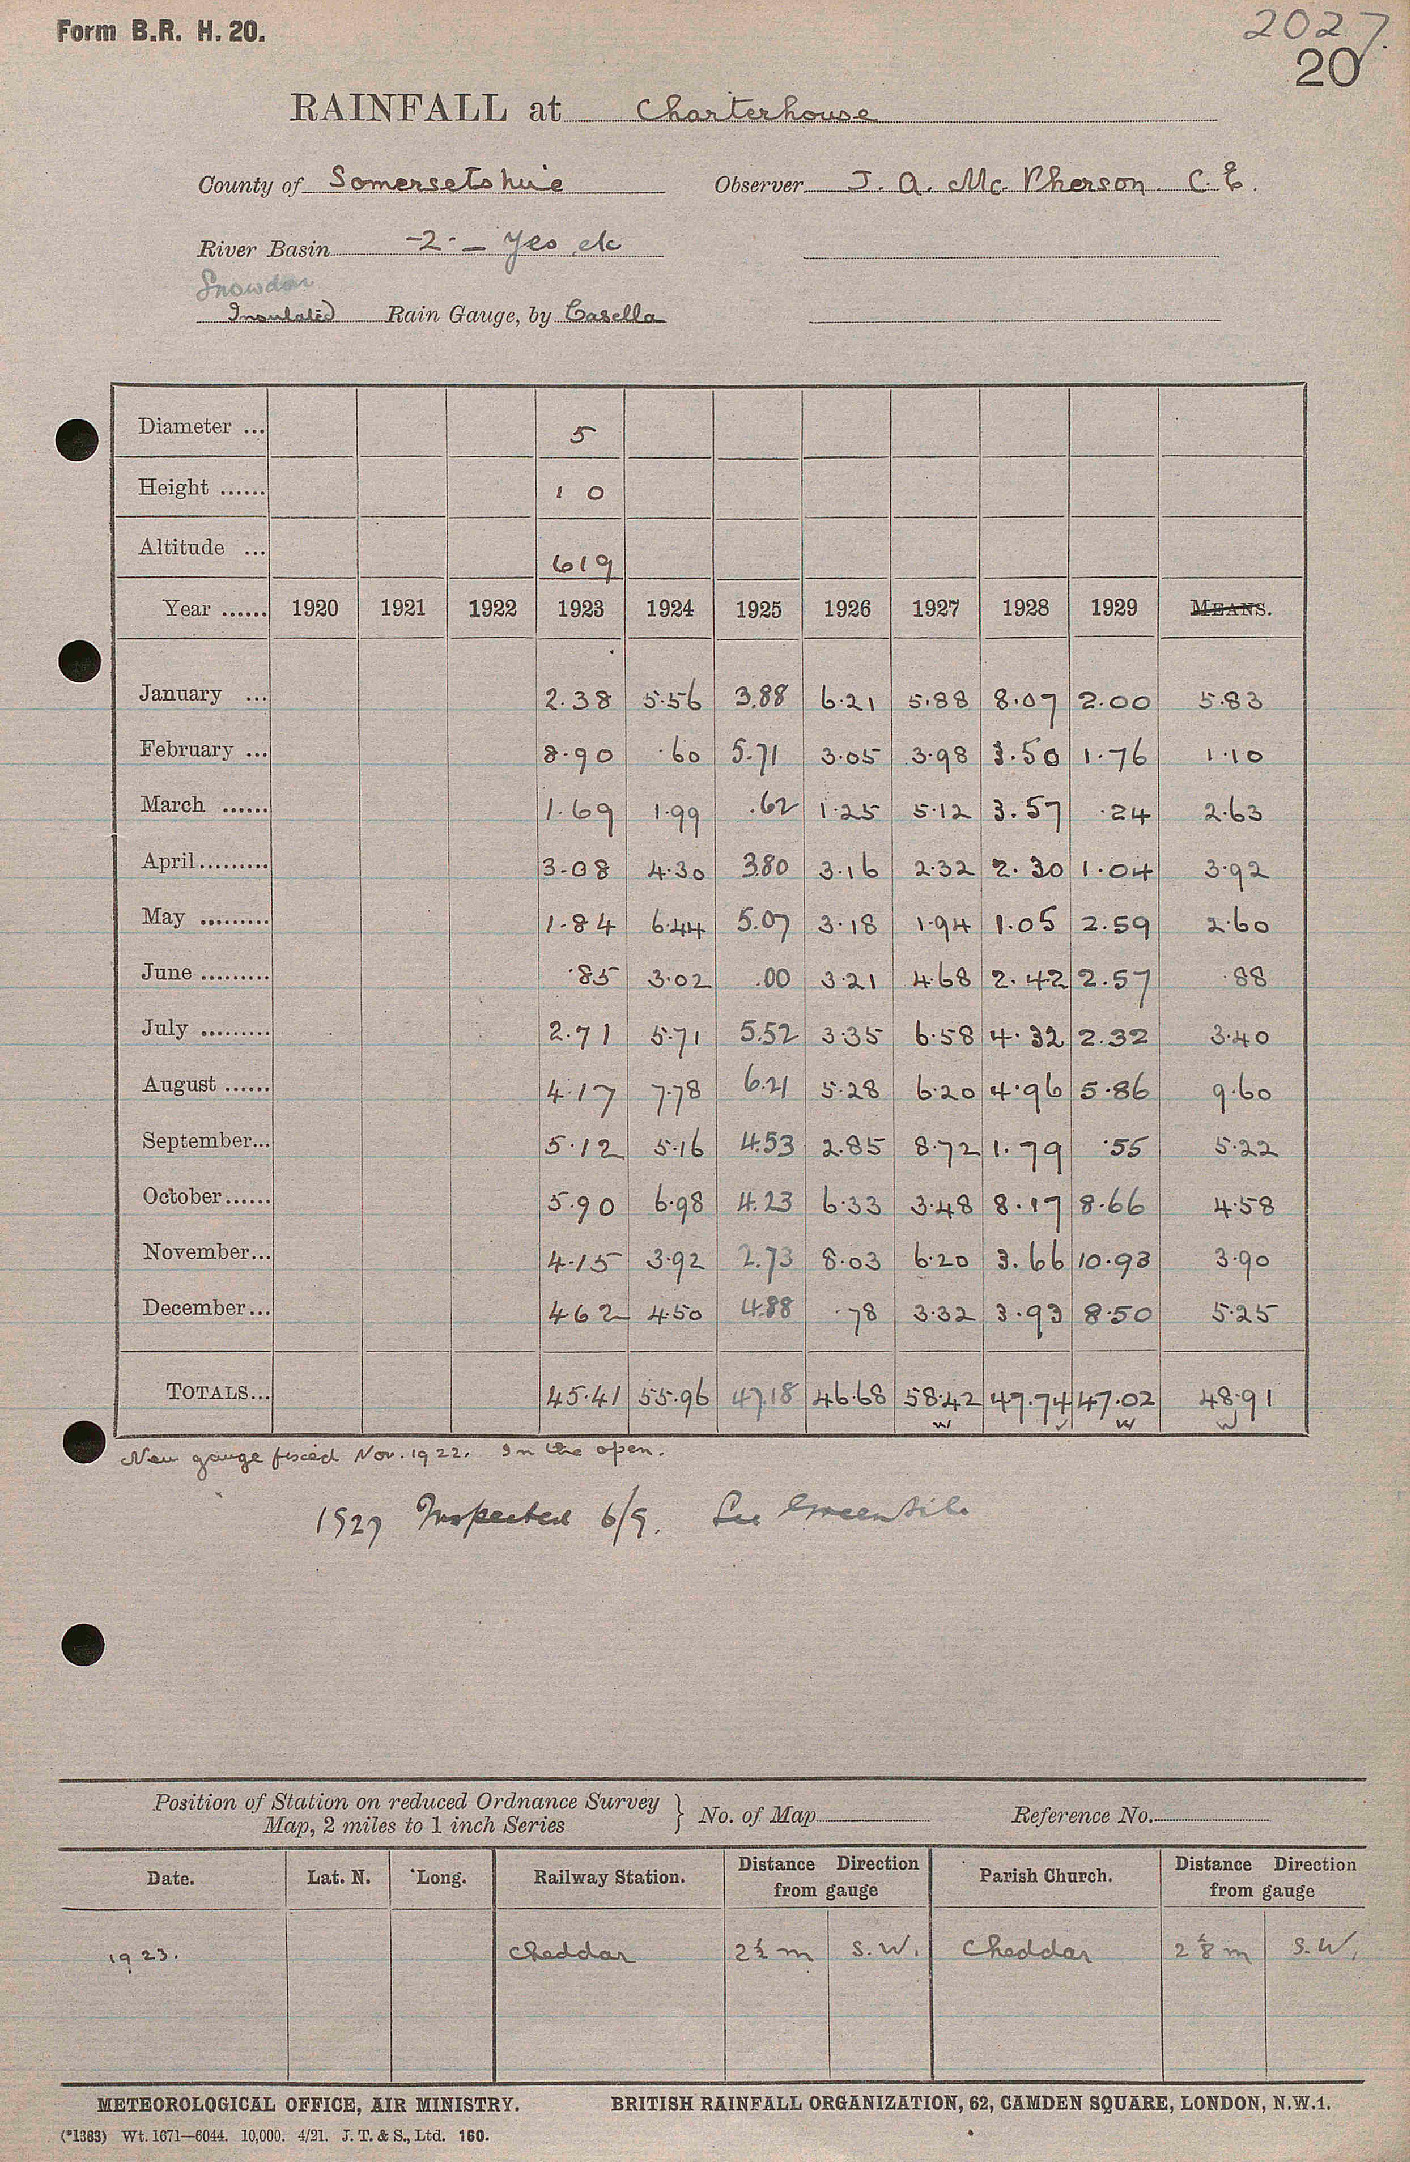 Form B.R. H. 20.
2027.
20
RAINFALL at Charterhouse
County of Somersetshire Observer J. A. Mc Pherson C.E.
River Basin -2- — Yeo etc
Snowdon
Insulated Rain Gauge, by Casella
Diameter ... 5
Height ...... 1 0
Altitude ... 619
Year ...... 1920 1921 1922 1923 1924 1925 1926 1927 1928 1929 MEANS.
January ... 2.38 5.56 3.88 6.21 5.88 8.07 2.00 5.83
February ... 8.90 .60 5.71 3.05 3.98 3.50 1.76 1.10
March ...... 1.69 1.99 .62 1.25 5.12 3.57 .24 2.63
April ......... 3.08 4.30 3.80 3.16 2.32 2.30 1.04 3.92
May ......... 1.84 6.44 5.07 3.18 1.94 1.05 2.59 2.60
June ......... .85 3.02 .00 3.21 4.68 2.42 2.57 .88
July ......... 2.71 5.71 5.52 3.35 6.58 4.32 2.32 3.40
August ...... 4.17 7.78 6.21 5.28 6.20 4.96 5.86 9.60
September... 5.12 5.16 4.53 2.85 8.72 1.79 .55 5.22
October...... 5.90 6.98 4.23 6.33 3.48 8.17 8.66 4.58
November... 4.15 3.92 2.73 8.03 6.20 3.66 10.93 3.90
December... 4.62 4.50 4.88 .78 3.32 3.93 8.50 5.25
TOTALS... 45.41 55.96 47.18 46.68 58.42 47.74 47.02 48.91
New gauge fixed Nov. 1922. In the open.
1927 Inspected 6/9. See Green Slip
Position of Station on reduced Ordnance Survey
Map, 2 miles to 1 inch Series } No. of Map Reference No.
Date. Lat. N. Long. Railway Station. Distance Direction from gauge Parish Church. Distance Direction from gauge
1923. Cheddar 2½ m S.W. Cheddar 2⅛ m S.W.
METEOROLOGICAL OFFICE, AIR MINISTRY. BRITISH RAINFALL ORGANIZATION, 62, CAMDEN SQUARE, LONDON, N.W.1.
(*1383) Wt. 1671—6044. 10,000. 4/21. J. T. & S., Ltd. 160.